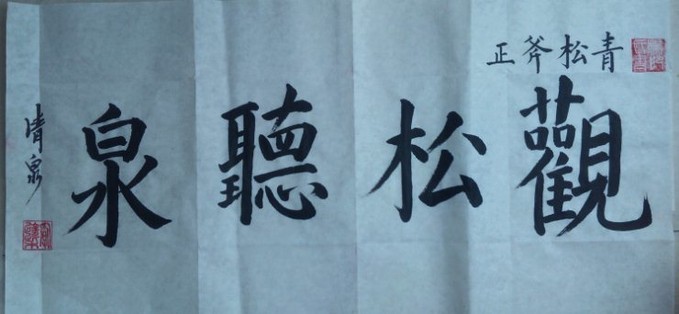 青松斧正
觀松聽泉
清泉